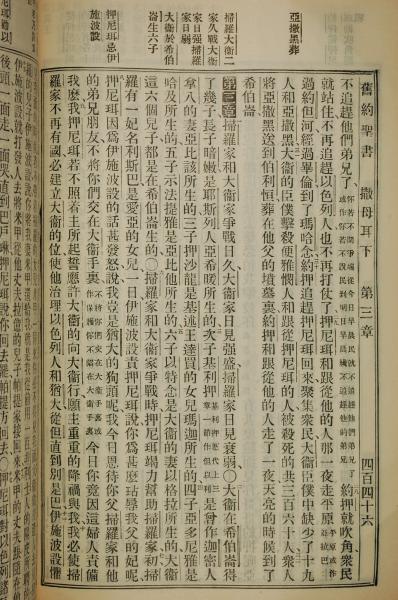 舊約聖書 撒母耳下 第三章 四百四十六
亞撒黑葬
掃羅大衛二
家久戰大衛
家日强掃羅
家日弱
大衛於希伯
崙生六子
押尼珥忌伊
施波設
不追趕他們弟兄了 約押就吹角衆民
就站住不再追趕以色列人也不再打仗了押尼珥和跟從他的人那一夜走平原 平原或作亞拉巴
過約但河經過畢倫到了瑪哈念約押追趕押尼珥回來聚集衆民大衛臣僕中缺少了十九
人和亞撒黑大衛的臣僕擊殺便雅憫人和跟從押尼珥的人被殺死的共三百六十人衆人
將亞撒黑送到伯利恒葬在他父的墳墓裏約押和跟從他的人走了一夜天亮的時候到了
希伯崙
第三章 掃羅家和大衛家爭戰日久大衛家日見強盛掃羅家日見衰弱○大衛在希伯崙得
了幾子長子暗嫩是耶斯列人亞希暖所生的次子基利押 基利押歷代上三章一節作但以利 是曾作迦密人
拿八的妻亞比該所生的三子押沙龍是基述王達買的女兒瑪迦所生的四子亞多尼雅是
哈及所生的五子示法提雅是亞比他所生的六子以特念是大衛的妻以格拉所生的大衛
這六個兒子都是在希伯崙生的○掃羅家和大衛家爭戰時押尼珥竭力幫助掃羅家初掃
羅有一妃名利斯巴是愛亞的女兒一日伊施波設責押尼珥說你爲甚麼玷辱我父的妃呢
押尼珥因爲伊施波設的話甚發怒說我豈是猶大的狗頭呢我今日恩待你父掃羅家和他
的弟兄朋友不將你們交在大衛手裏 今日你竟因這婦人責備
我麼我押尼珥若不照着主所起誓應許大衛的向大衛行願主重重的降禍與我我必使掃
羅家不再有國必建立大衛的位使他治理以色列人和猶大從但直到別是巴伊施波設懼
後頭一面走一面哭直到巴戶琳押尼珥說你回去罷帕提方回去○押尼珥對以色列